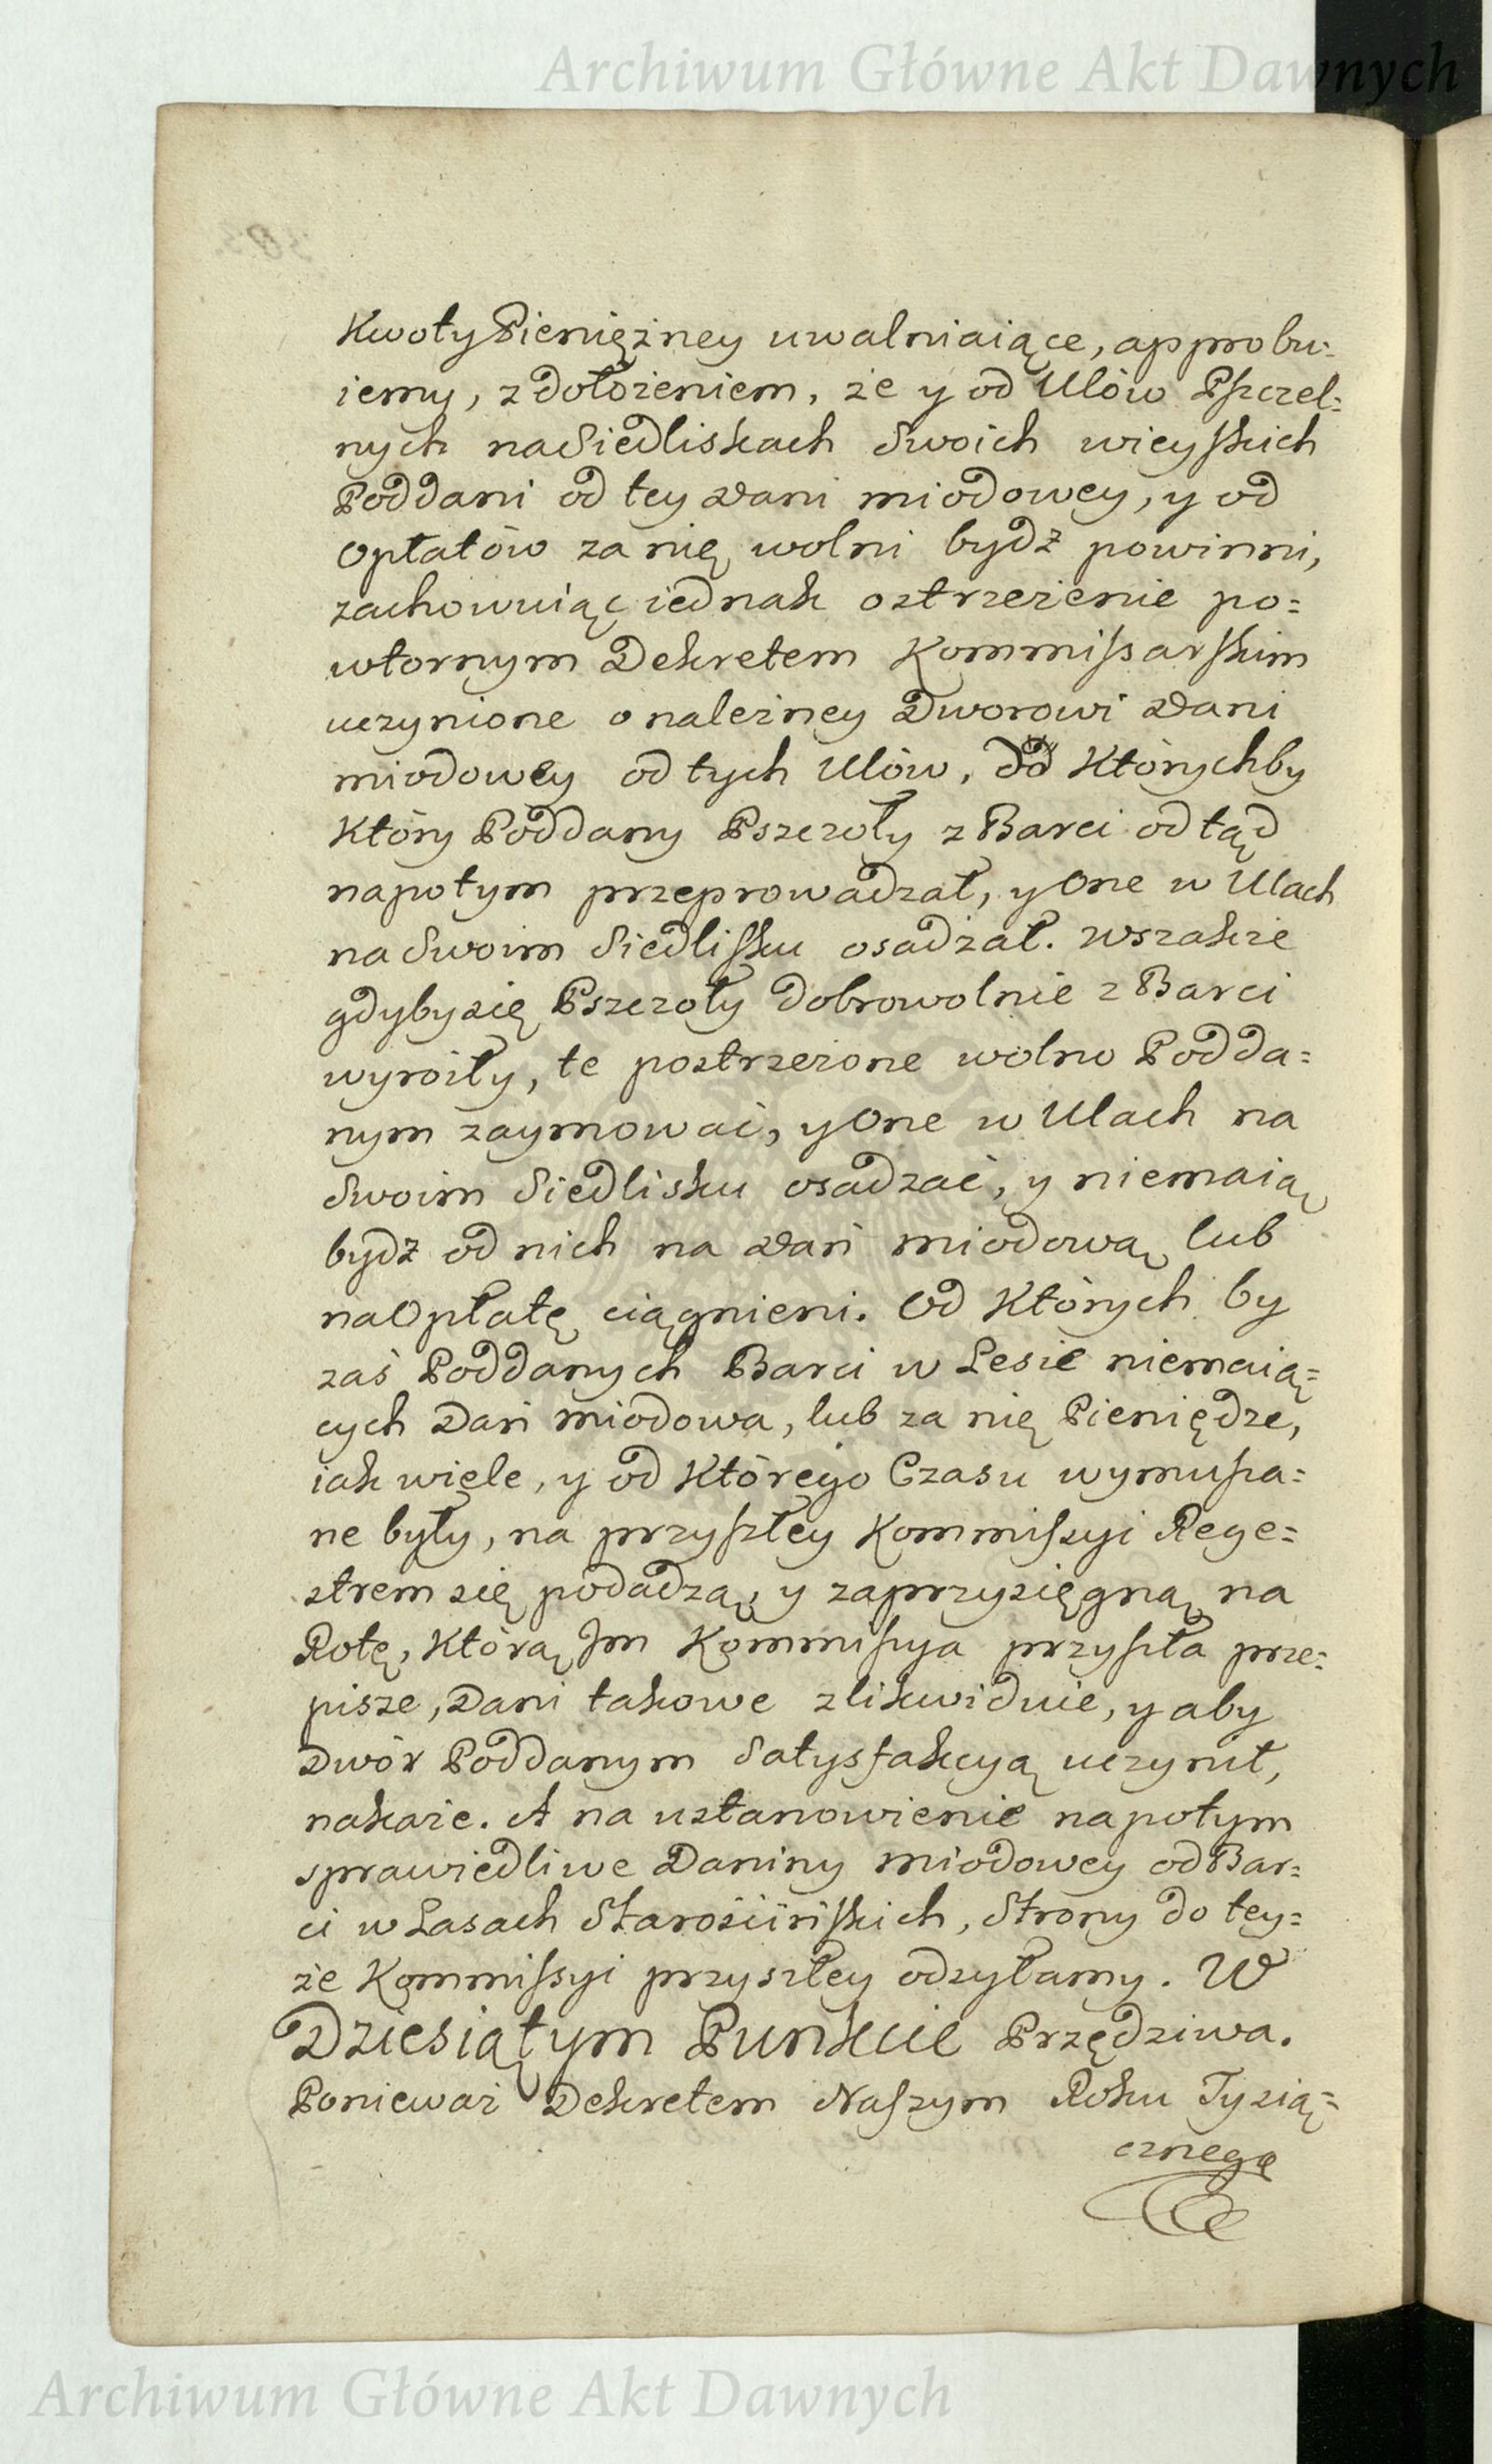 Archiwum Główne Akt Dawnych
Kwoty Pieniężney uwalniaiące, approbu=
iemy, z dołożeniem, że y od Ulów Pszczel=
nych na Siedliskach Swoich wieyskich
Poddani od tey Dani miodowey, y od
Opłatów za nię wolni bydź powinni,
zachowuiąc iednak ostrzeżenie po=
wtornym Dekretem Kommissarskim
uczynione o należney Dworowi Dani
miodowey od tych Ulów, do Którychby
Który Poddany Pszczoły z Barci odtąd
napotym przeprowadzał, y One w Ulach
na Swoim Siedlisku osadzał. Wszakże
gdyby się Pszczoły dobrowolnie z Barci
wyroiły, te postrzeżone wolno Podda=
nym zaymować, y One w Ulach na
Swoim Siedlisku osadzać, y niemaią
bydź od nich na Dań miodową lub
na Opłatę ciągnieni. Od Których by
zaś Poddanych Barci w Lesie niemaią=
cych Dań miodowa, lub za nię Pieniędze,
iak wiele, y od Którego Czasu wymusza=
ne były, na przyszłey Kommissyi Rege=
strem się podadzą, y zaprzysięgną na
Rotę, Którą Jm Kommissya przyszła prze=
pisze, Dani takowe zlikwiduie, y aby
Dwór Poddanym Satysfakcyą uczynił,
nakaże. A na ustanowienie napotym
sprawiedliwe Daniny miodowey od Bar=
ci w Lasach Starościńskich, Strony do tey=
że Kommissyi przyszłey odsyłamy. W
Dziesiątym Punkcie Przędziwa.
Ponieważ Dekretem Naszym Roku Tysią=
cznego
Archiwum Główne Akt Dawnych